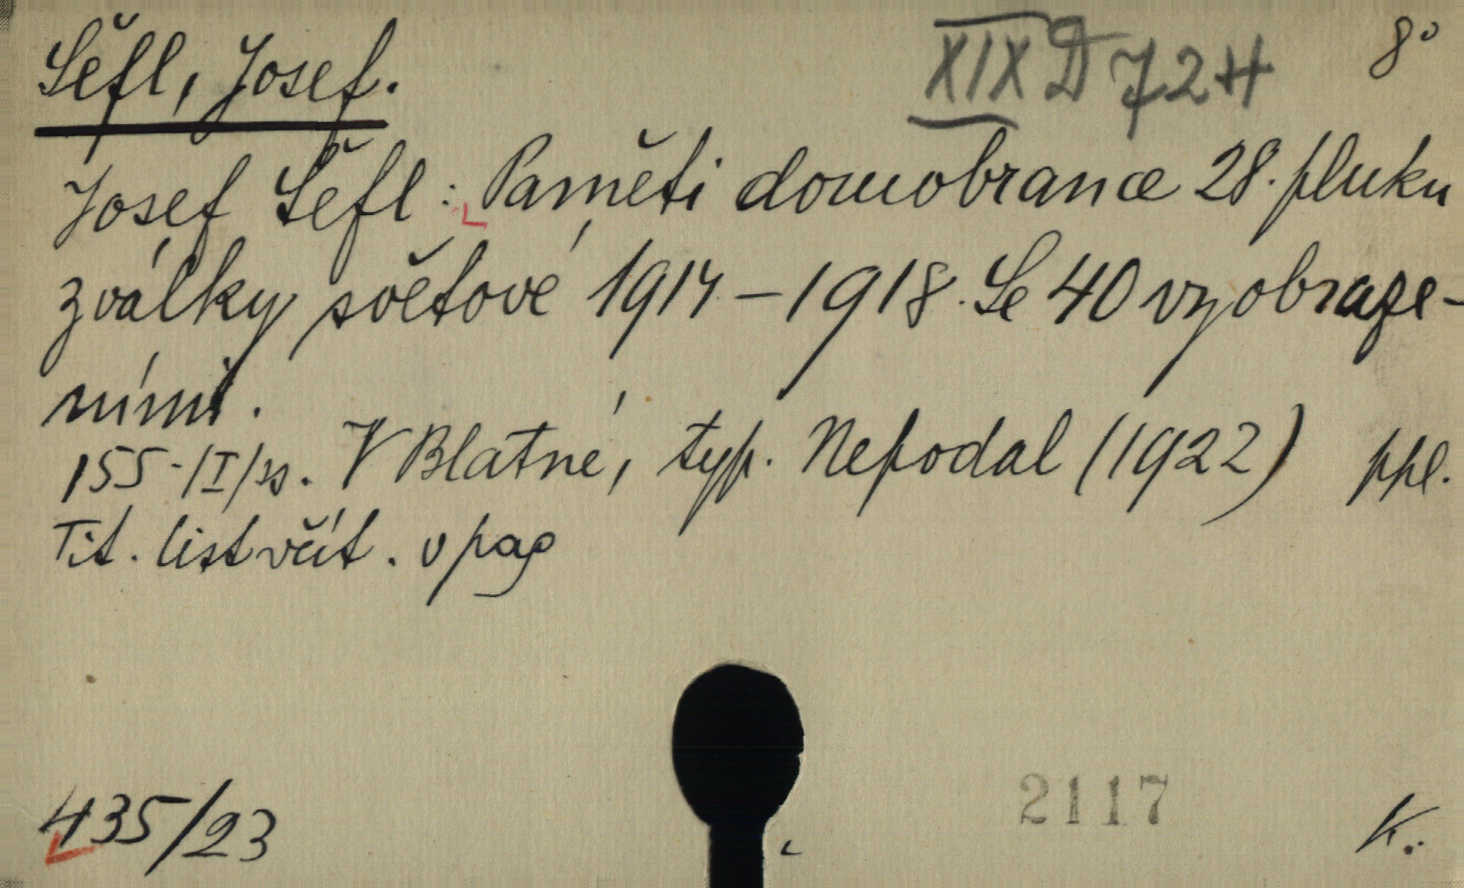 Šéfl, Josef.
XIX D 72 H
8°
Josef Šéfl: Paměti domobrance 28. pluku
z války světové 1914–1918. Se 40 vyobraze-
ními.
155-/I/ ss. V Blatné, typ. Nepodal (1922) ppl.
Tit. list včít. v pag
435/23
2117
K.